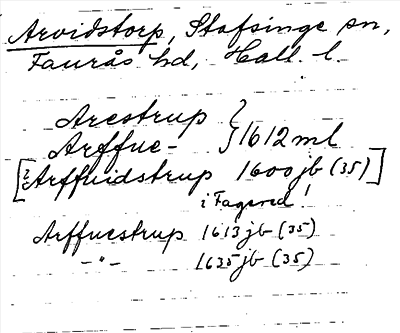 Arvidstorp, Stafsinge sn,
Faurås hd, Hall. l.
Arestrup
Arffue- } 1612 ml
[? Arffuidstrup 1600 jb (35)]
i Fagered!
Arffuestrup 1613 jb (35)
-"- 1635 jb (35)